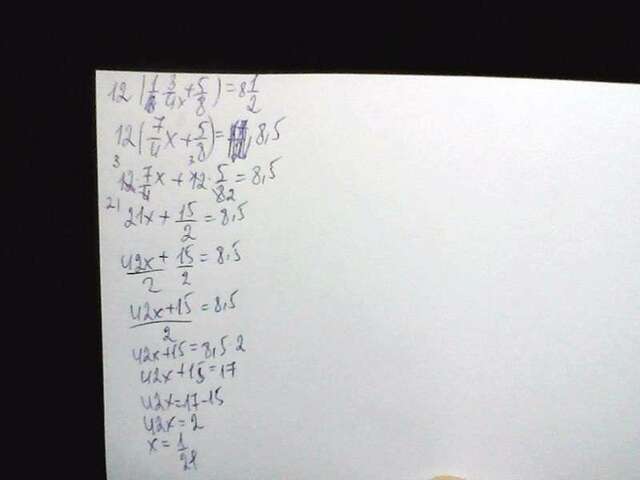 12(1 3/4 x + 5/8) = 8 1/2
12(7/4 x + 5/8) = 8,5
12 · 7/4 x + 12 · 5/8 = 8,5
21x + 15/2 = 8,5
42x/2 + 15/2 = 8,5
42x+15/2 = 8,5
42x+15 = 8,5 · 2
42x+15 = 17
42x = 17-15
42x = 2
x = 1/21